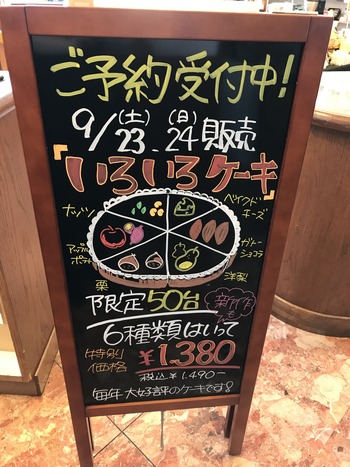 ご予約受付中!
9/23(土).24(日)販売
「いろいろケーキ」
ナッツ
ベイクド
チーズ
アップル
ポテト
ガトー
ショコラ
栗
洋梨
限定50台
新作も
6種類はいって
特別
価格
¥1,380
税込¥1,490-
毎年大好評のケーキです!